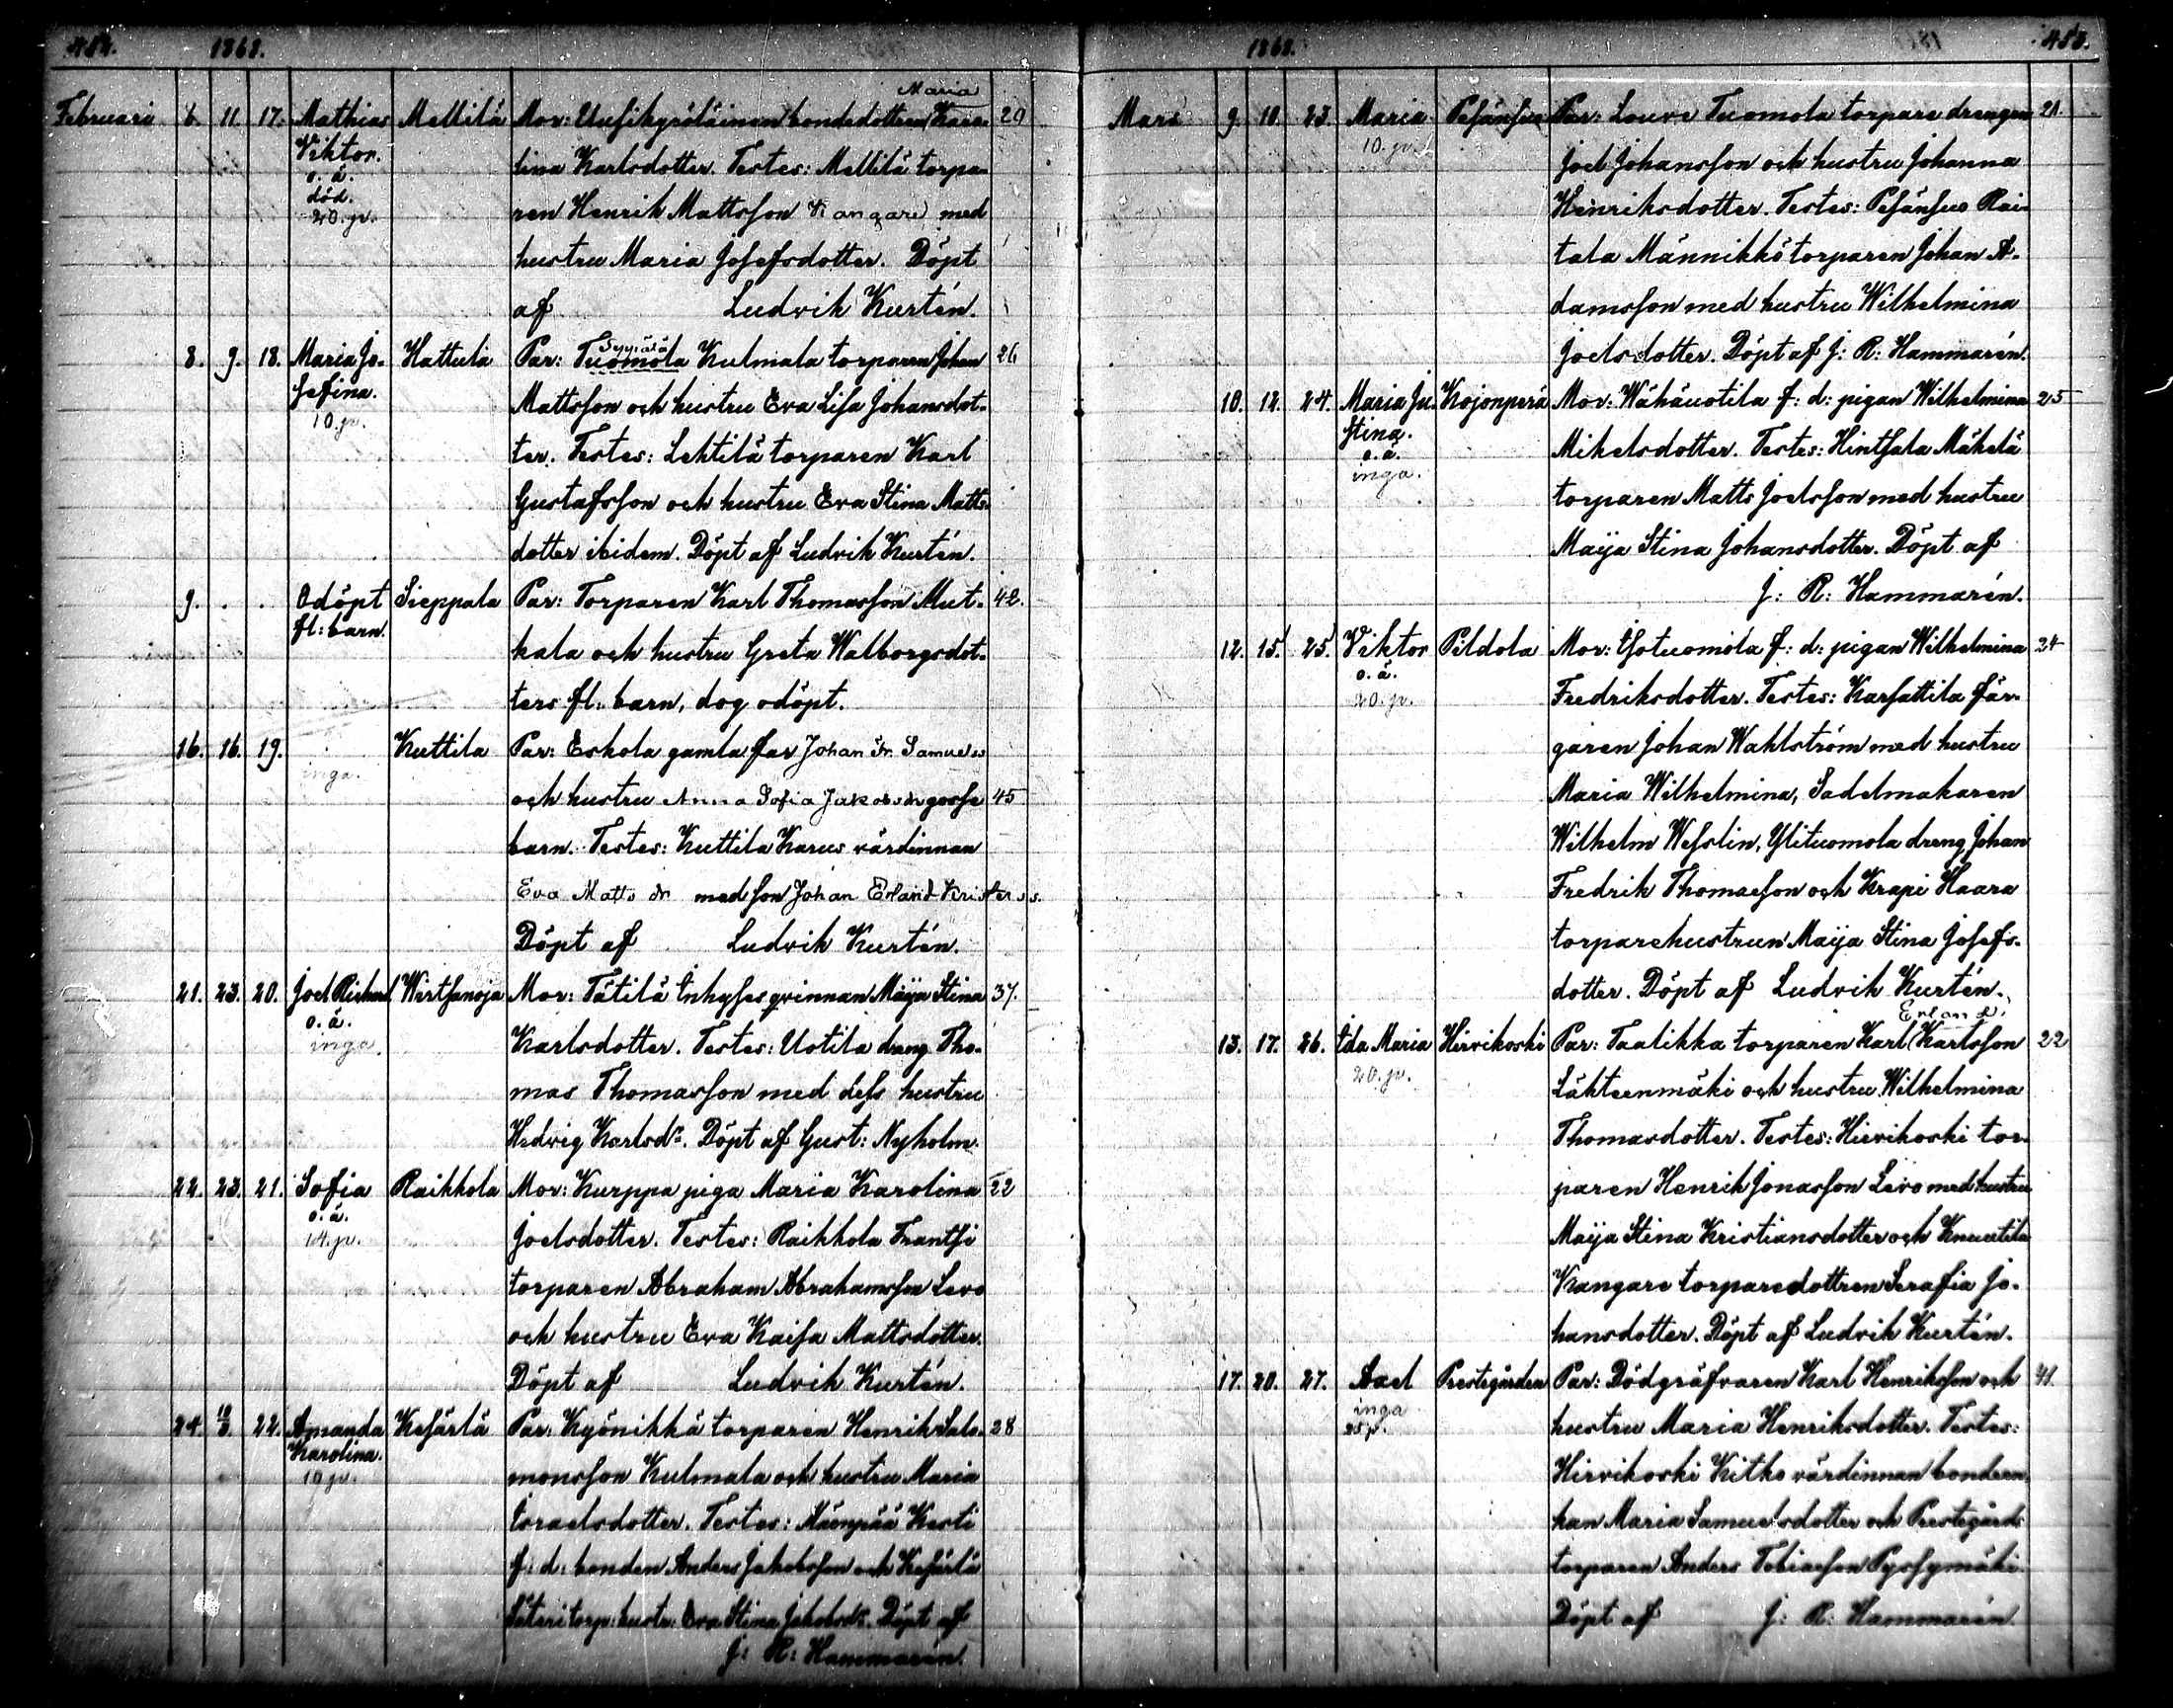 1868.
Februari 6. 11. 17. Mathias Mellilä Mor: Uusikyröläinen bondedottren Maria Karo- 29
Viktor. lina Karlsdotter. Testes: Mellilä torpa-
o. ä.
död. ren Henrik Mattsson Kangare med
20. jr.
hustru Maria Josefsdotter. Döpt
af Ludvik Kurtén.
8. 9. 18. Maria Jo- Hattula Par: Tuomola Kulmala torparen Johan 26
sefina. Mattsson och hustru Eva Lisa Johansdot-
10. jr.
ter. Testes: Lehtilä torparen Karl
Gustafsson och hustru Eva Stina Matts-
dotter ibidem. Döpt af Ludvik Kurtén.
9. . . Odöpt Sieppala Par: Torparen Karl Thomasson Mut- 42.
fl: barn. kala och hustru Greta Walborgsdot-
ters fl: barn, dog odöpt.
16. 16. 19. Kuttila Par: Eskola gamla far Johan Fr. Samuelss
inga.
och hustru Anna Sofia Jakobsdr gosse 45
barn. Testes: Kuttila Karus värdinnan
Eva Matts dr med son Johan Erland Kristerss.
Döpt af Ludvik Kurtén.
21. 23. 20. Joel Richard Wirtsanoja Mor: Tätilä Inhysesqvinnan Maija Stina 37.
o. ä.
inga. Karlsdotter. Testes: Uotila dräng Tho-
mas Thomasson med dess hustru
Hedvig Karlsdr. Döpt af Gust: Nyholm.
22. 23. 21. Sofia Raikkola Mor: Kurppa piga Maria Karolina 22
o. ä.
14. jr. Joelsdotter. Testes: Raikkola Frantsi
torparen Abraham Abrahamsson Levo
och hustru Eva Kaisa Mattsdotter.
Döpt af Ludvik Kurtén.
24. 10/3 22. Amanda Kesärlä Par: Kyönikkä torparen Henrik Salo- 28
Karolina. monsson Kulmala och hustru Maria
10 jr.
Israelsdotter. Testes: Mäenpää Kesti
f: d: bonden Anders Jakobsson och Kesärlä
Säteri torp: hustr: Eva Stina Jakobsdr. Döpt af
J: R: Hammarén.
1868. 455.
Mars 9. 10. 23. Maria Pesänsuo Par: Louvi Tuomola torpare drengen 21.
10. jr.
Joel Johansson och hustru Johanna
Henriksdotter. Testes: Pesänsuo Rai-
tala Männikkö torparen Johan A-
damsson med hustru Wilhelmina
Joelsdotter. Döpt af J: R: Hammarén.
10. 12. 24. Maria Ju- Kojonperä Mor: Wähäuotila f: d: pigan Wilhelmina 25
stina. Mikelsdotter. Testes: Hintsala Mäkelä
o. ä.
inga. torparen Matts Joelsson med hustru
Maija Stina Johansdotter. Döpt af
J: R: Hammarén.
12. 15. 25. Viktor Pildola Mor: Isotuomola f: d: pigan Wilhelmina 24
o. ä.
20. jr. Fredriksdotter. Testes: Karsattila fär-
garen Johan Wahlström med hustru
Maria Wilhelmina, Sadelmakaren
Wilhelm Wesslin, Ylituomola dreng Johan
Fredrik Thomasson och Krapi Haara
torparehustrun Maija Stina Josefs-
dotter. Döpt af Ludvik Kurtén.
13. 17. 26. Ida Maria Hirvikoski Par: Taalikka torparen Karl Erland Karlsson 22
20. jr.
Lähteenmäki och hustru Wilhelmina
Thomasdotter. Testes: Hirvikoski tor-
paren Henrik Jonasson Levo med hustru
Maija Stina Kristiansdotter och Knuutila
Kangare torparedottren Serafia Jo-
hansdotter. Döpt af Ludvik Kurtén.
17. 20. 27. Axel Prestegården Par: Dödgräfvaren Karl Henriksson och 41.
inga
25 jr. hustru Maria Henriksdotter. Testes:
Hirvikoski Kitko värdinnan bondeen-
kan Maria Samuelsdotter och Prestegårds
torparen Anders Tobiasson Pyssymäki.
Döpt af J: R: Hammarén.